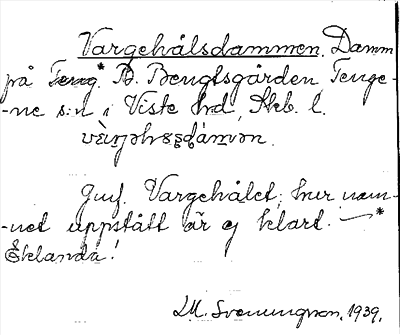 Vargehålsdammen, Damm
på Teng.* B. Bengtsgården Tenge-
-ne s:n i Viste hrd, Skb. l.
Jmf. Vargehålet; hur nam-
-net uppstått är ej klart. — *
Eklanda!
M. Svenungson, 1939.